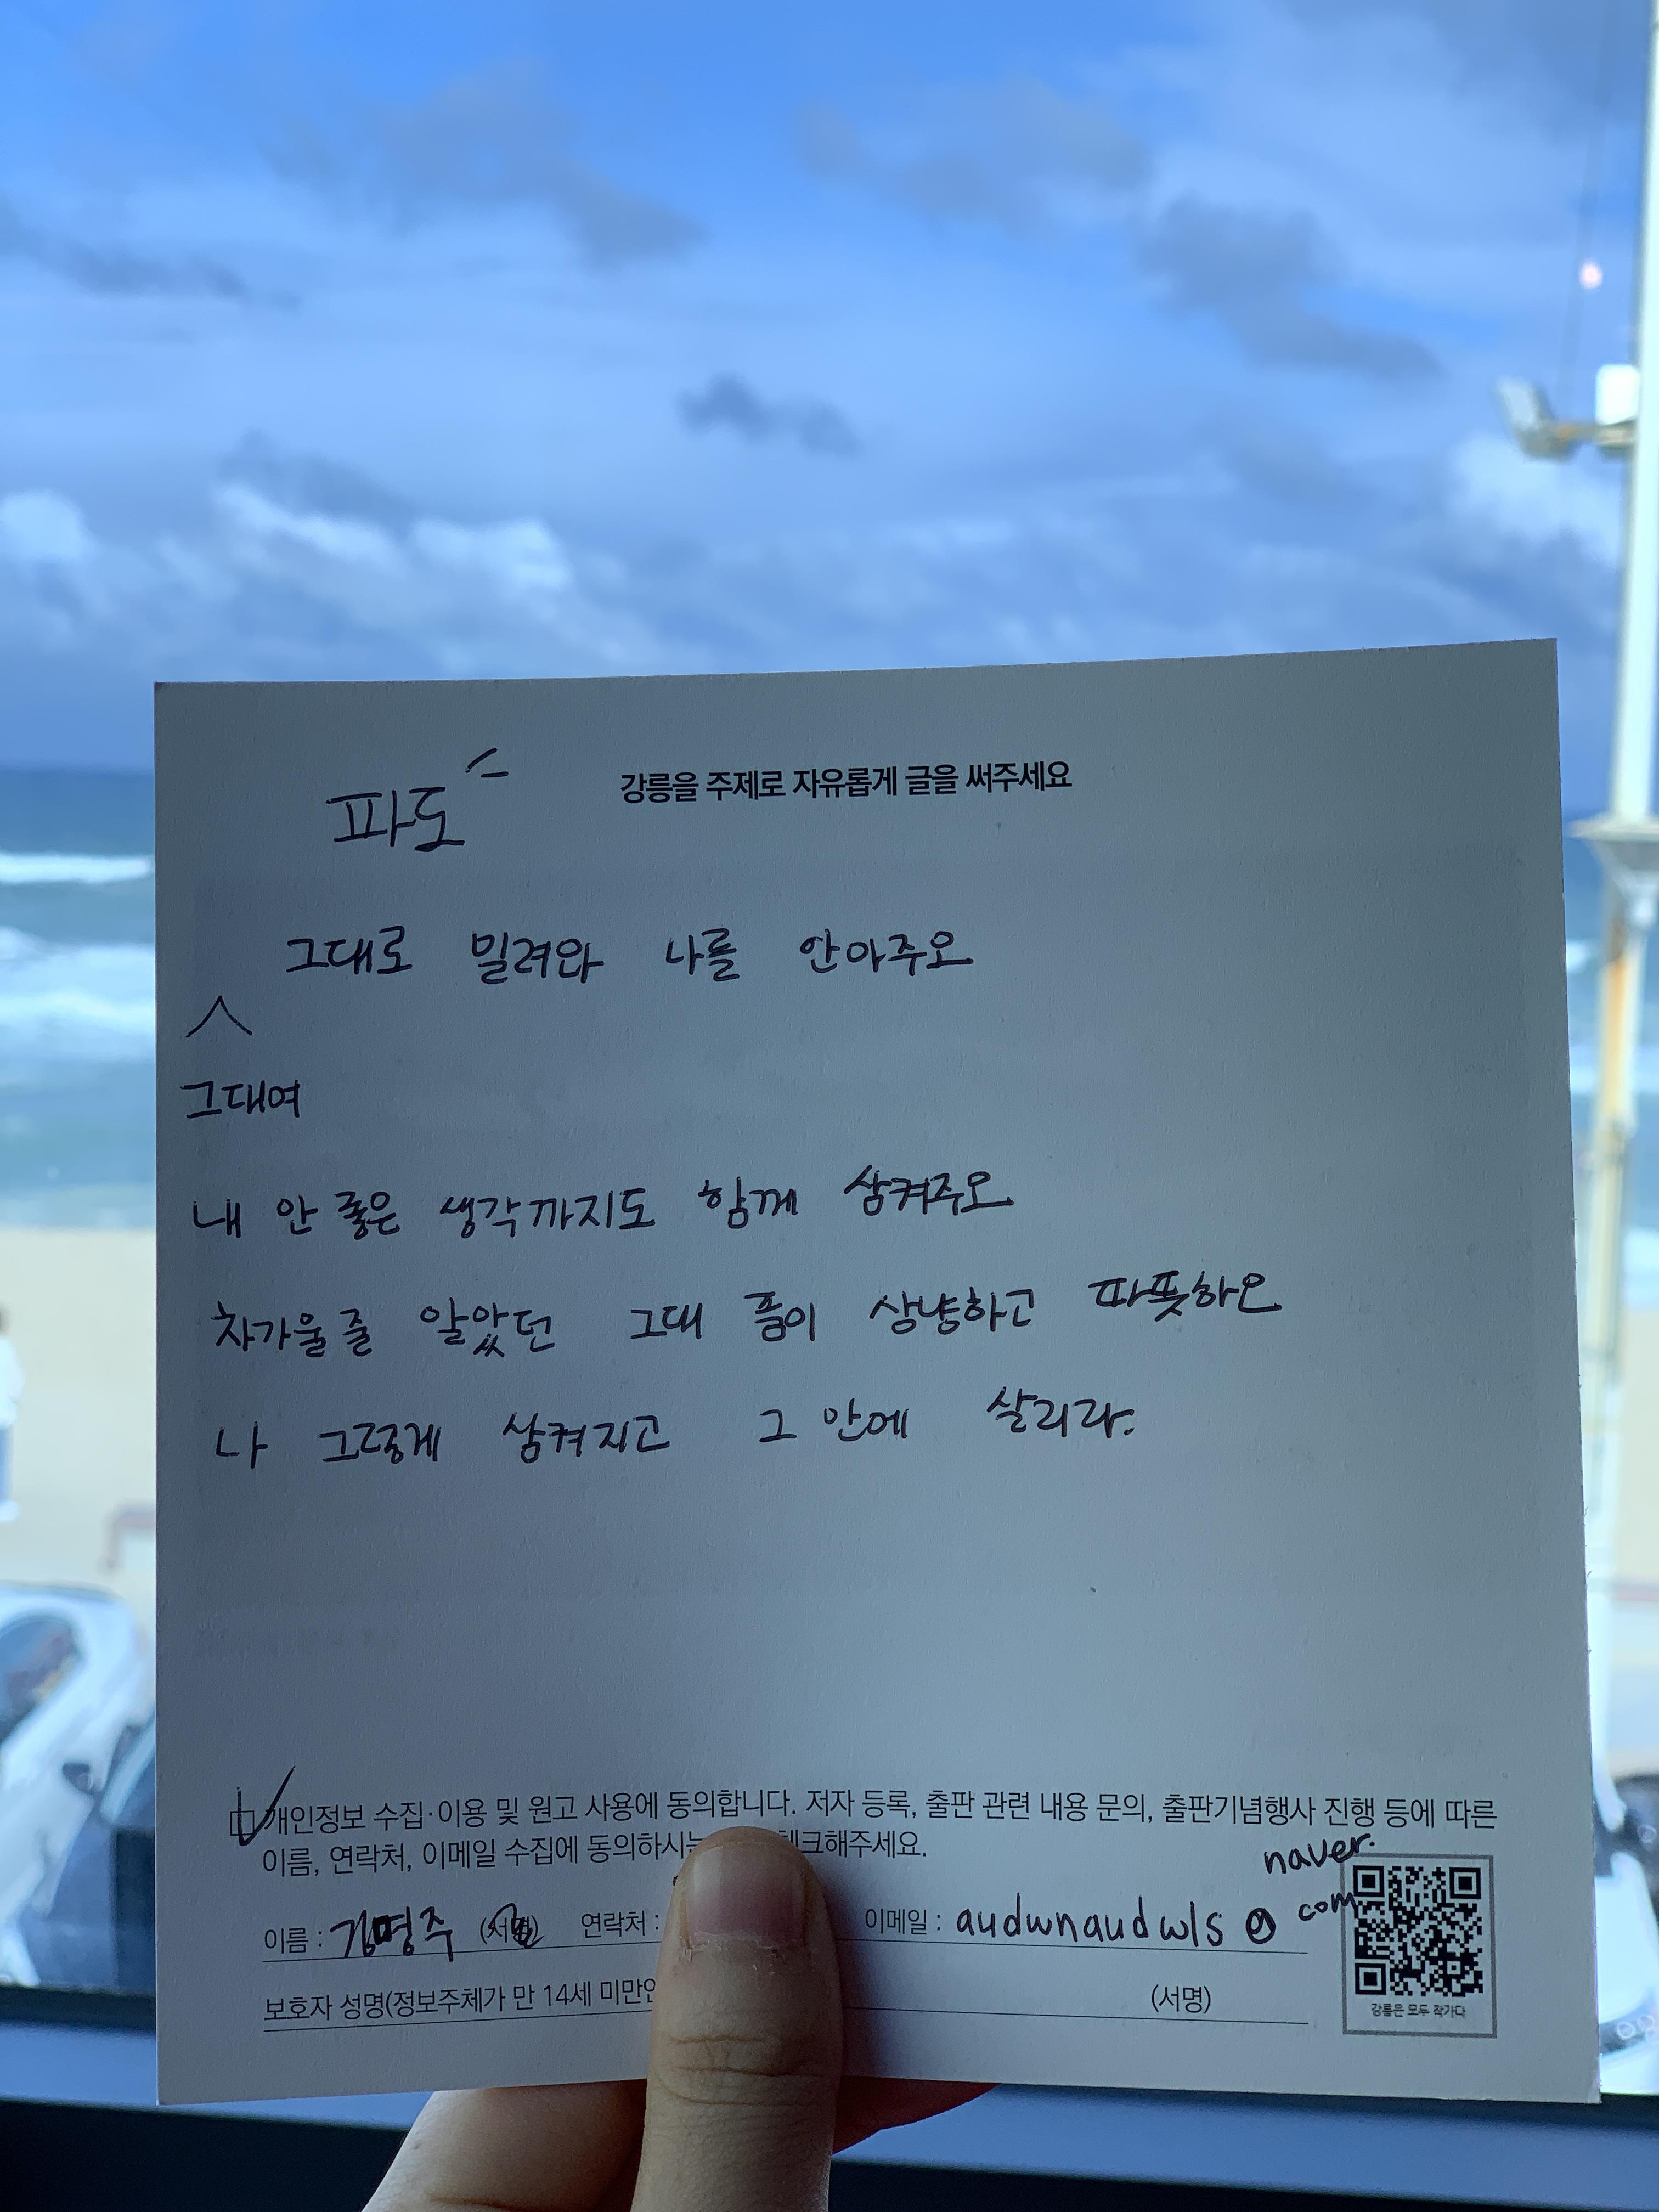 강릉을 주제로 자유롭게 글을 써주세요
파도
그대로 밀려와 나를 안아주오
그대여
내 안 좋은 생각까지도 함께 삼켜주오
차가울 줄 알았던 그대 품이 상냥하고 따뜻하오
나 그렇게 삼켜지고 그 안에 살리라.
개인정보 수집·이용 및 원고 사용에 동의합니다. 저자 등록, 출판 관련 내용 문의, 출판기념행사 진행 등에 따른
이름, 연락처, 이메일 수집에 동의하시는 체크해주세요.
이름 : 김명주 (서명) 연락처 : 이메일 : audwnaudwls@naver.com
보호자 성명(정보주체가 만 14세 미만인 (서명)
강릉은 모두 작가다